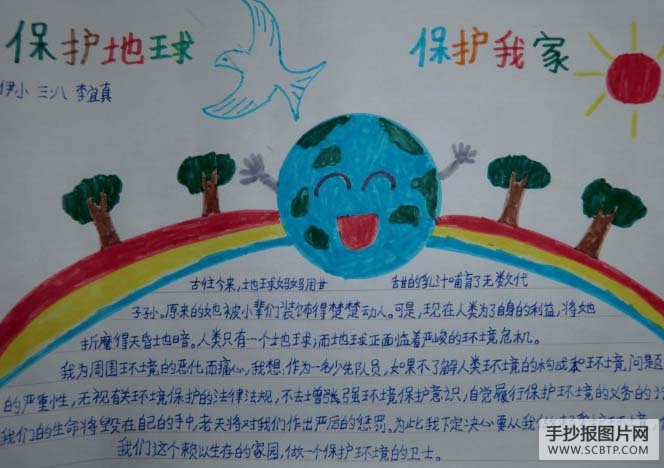 保护地球
保护我家
伊小 三八 李宜真
古往今来,土地球妈妈用甘 甜的乳汁哺育了无数代
子子孙。原来的她被小辈们装饰得楚楚动人。可是,现在人类为了自身的利益,将她
折磨得天昏地暗。人类只有一个地球;而地球正面临着严峻的环境危机。
我为周围环境的恶化而痛心,我想:作为一名少先队员,如果不了解人类环境的构成和环境问是
的严重性,无视有关环境保护的法律法规,不去增强环境保护意识,自觉履行保护环境的义务的话
我们的生命将毁在自己的手中,老天将对我们作出严厉的惩罚。为此我下定决心要从我做
我们这个赖以生存的家园,做一个保护环境的卫士。
手抄报图片网
WWW.SCBTP.COM